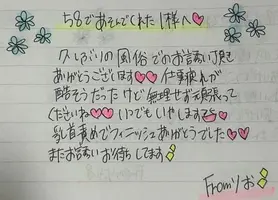 58であそんでくれたI様へ♡
久しぶりの風俗でのお誘い頂き
ありがとうございます♡♡ 仕事疲れが
酷そうだったけど無理せず頑張って
くださいね♡♡ いつでもいやします
乳首責めでフィニッシュありがとうでした♡♡
またお誘いお待ちしてます
Fromりお